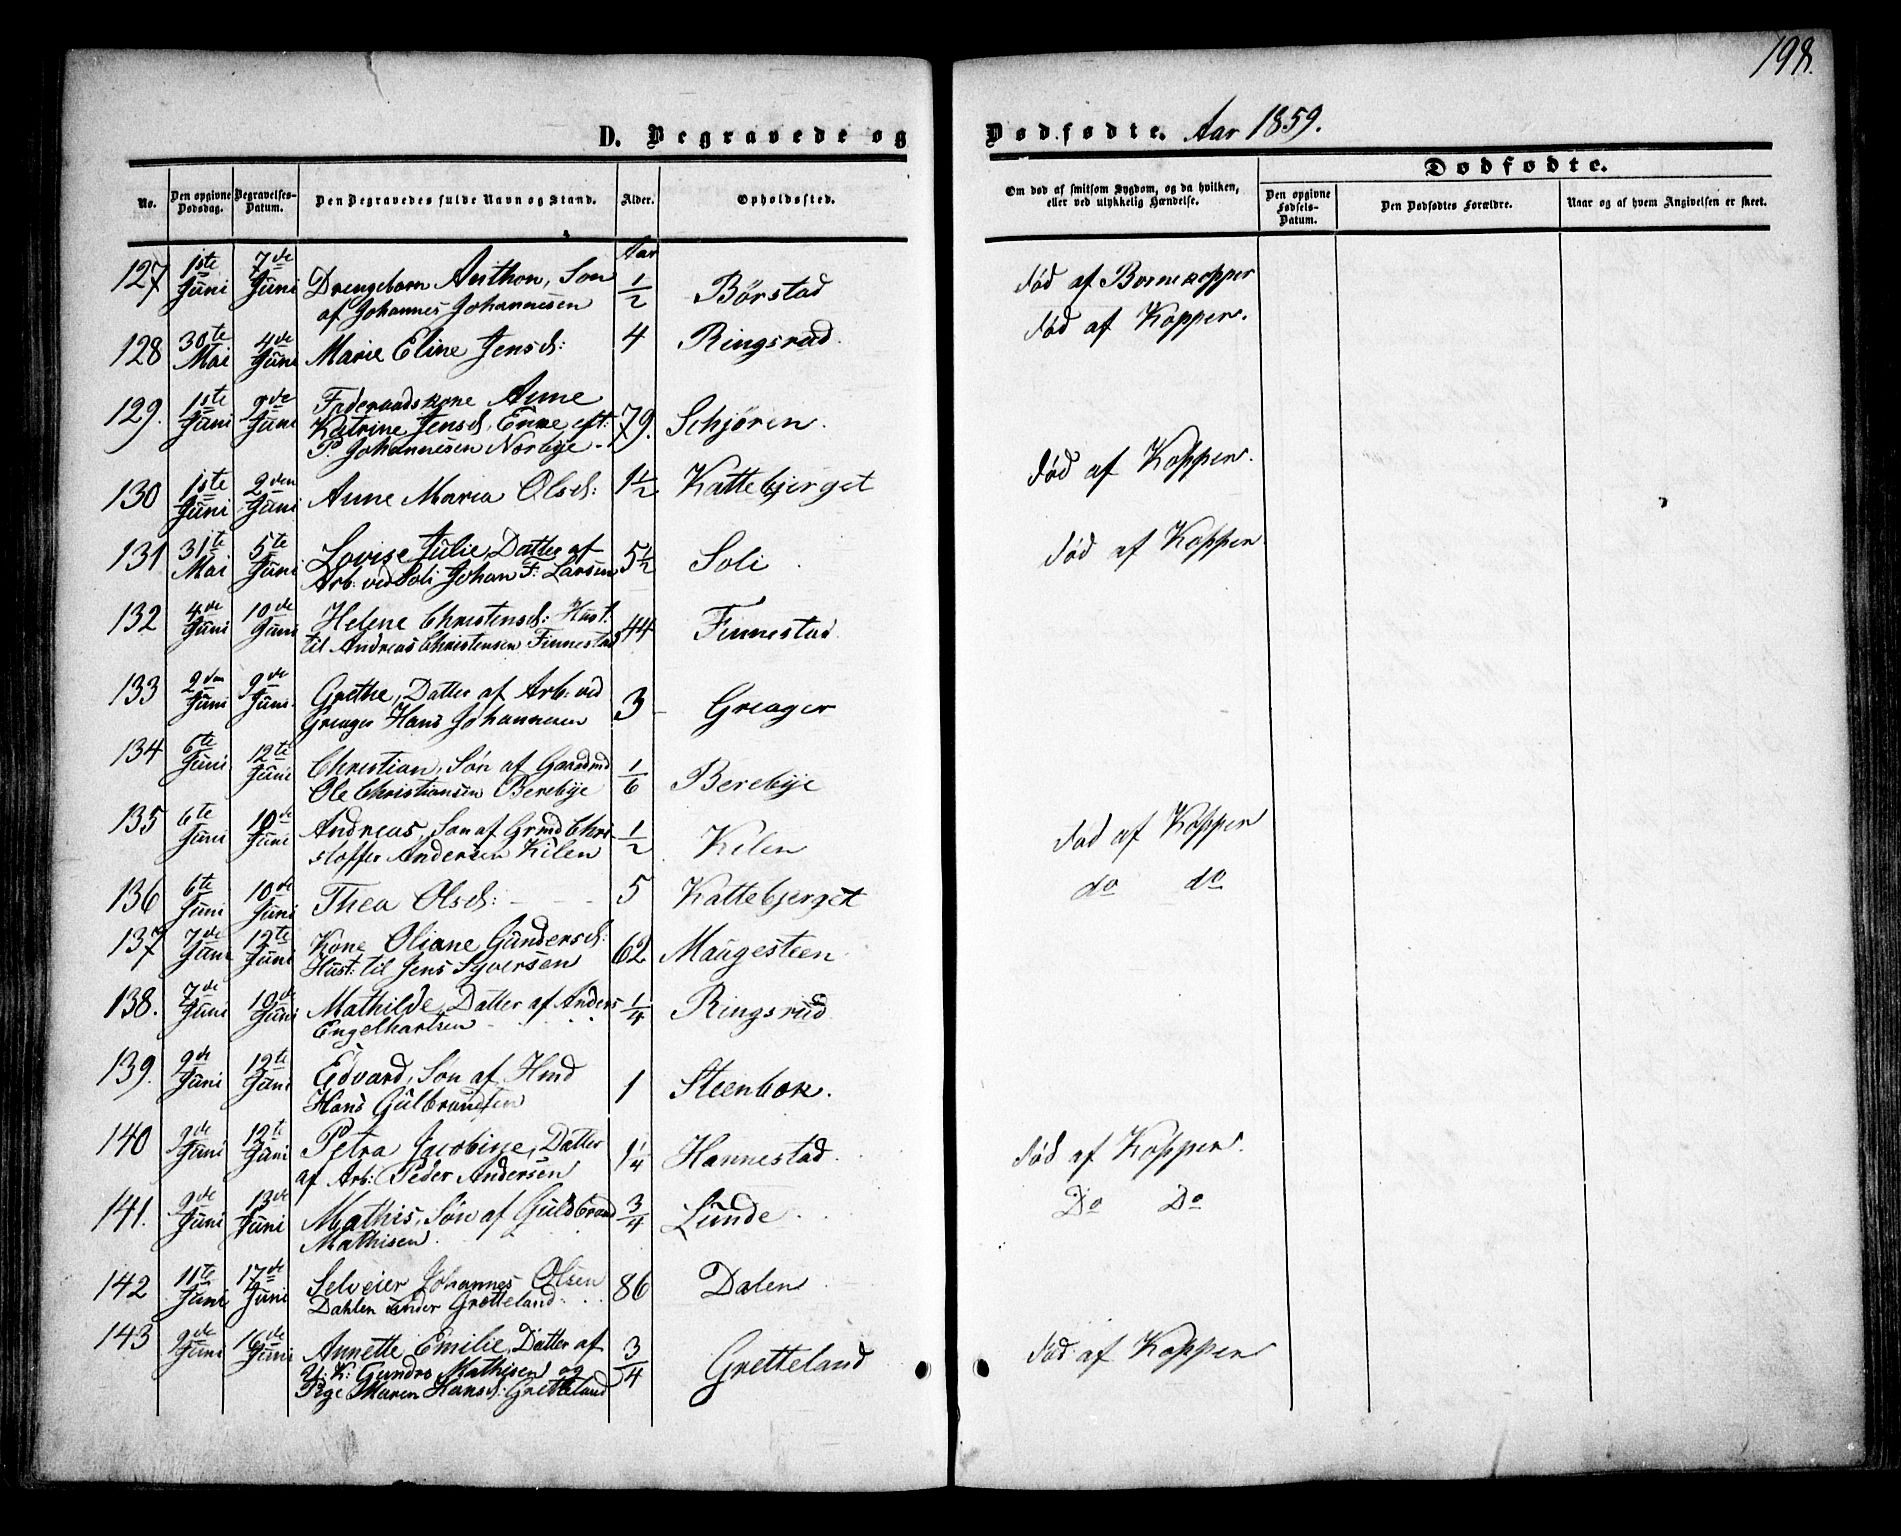 198.
D. Begravede og Dødfødte. Aar 1859.
No. Den opgivne Dødsdag. Begravelses-Datum. Den Begravedes fulde Navn og Stand. Alder. Opholdssted. Om død af smitsom Sygdom, og da hvilken, eller ved ulykkelig Hændelse. Dødfødte. Den opgivne Fødsels-Datum. Den Dødfødtes Forældre. Naar og af hvem Angivelsen er skeet.
Aar
127 1ste Juni 7de Juni Drengebarn Anthon, Søn af Johannes Johannesen 1/2 Børstad død af Bornekopper
128 30te Mai 4de Juni Marie Eline Jensd: 4 Ringsrud. død af Kopper.
129. 1ste Juni 9de Juni Føderaadskone Anne Katrine Jensd. Enke eft: P. Johannesen Norbye 79. Schjøren.
130 1ste Juni 2den Juni Anne Maria Olsd: 1 1/2 Kattebjerget død af Kopper.
131 31te Mai 5te Juni Lovise Julie, Datter af Arb: ved Soli Johan F: Larsen 5 1/2 Soli død af Kopper
132 4de Juni 10de Juni Helene Christensd: Hust: til Andreas Christensen Finnestad 44 Finnestad
133 2den Juni 9de Juni. Grethe, Datter af Arb: ved Greager Hans Johannesen 3 Greager
134 6te Juni 12te Juni Christian, Søn af Gaardmd Ole Christiansen Berebye 1/6 Berebye
135 6te Juni 10de Juni Andreas, Søn af Grmd Christoffer Andersen Kilen 1/2 Kilen død af Kopper
136 6te Juni 10de Juni Thea Olsd: 5 Kattebjerget do do
137 7de Juni 12te Juni Kone Oliane Gundersd: Hust: til Jens Syversen 62 Maugesteen
138. 7de Juni 10de Juni Mathilde, Datter af Anders Engelhartsen 1/4 Ringsrud
139. 9de Juni 12te Juni Edvard, Søn af Hmd Hans Gulbrandsen 1 Steenbok.
140 9de Juni 12te Juni Petra Jacobine, Datter af Arb: Peder Andersen 1 1/4 Hannestad død af Kopper.
141. 9de Juni 13de Juni Mathis, Søn af Guldbrand Mathisen 3/4 Lunde Do Do
142 11te Juni 17de Juni Selveier Johannes Olsen Dahlen under Gretteland 86 Dalen
143 9de Juni 16de Juni Annette Emilie, Datter af U: K: Gundro Mathisen og Pige Maren Hansd: Gretteland 3/4 Gretteland død af Kopper